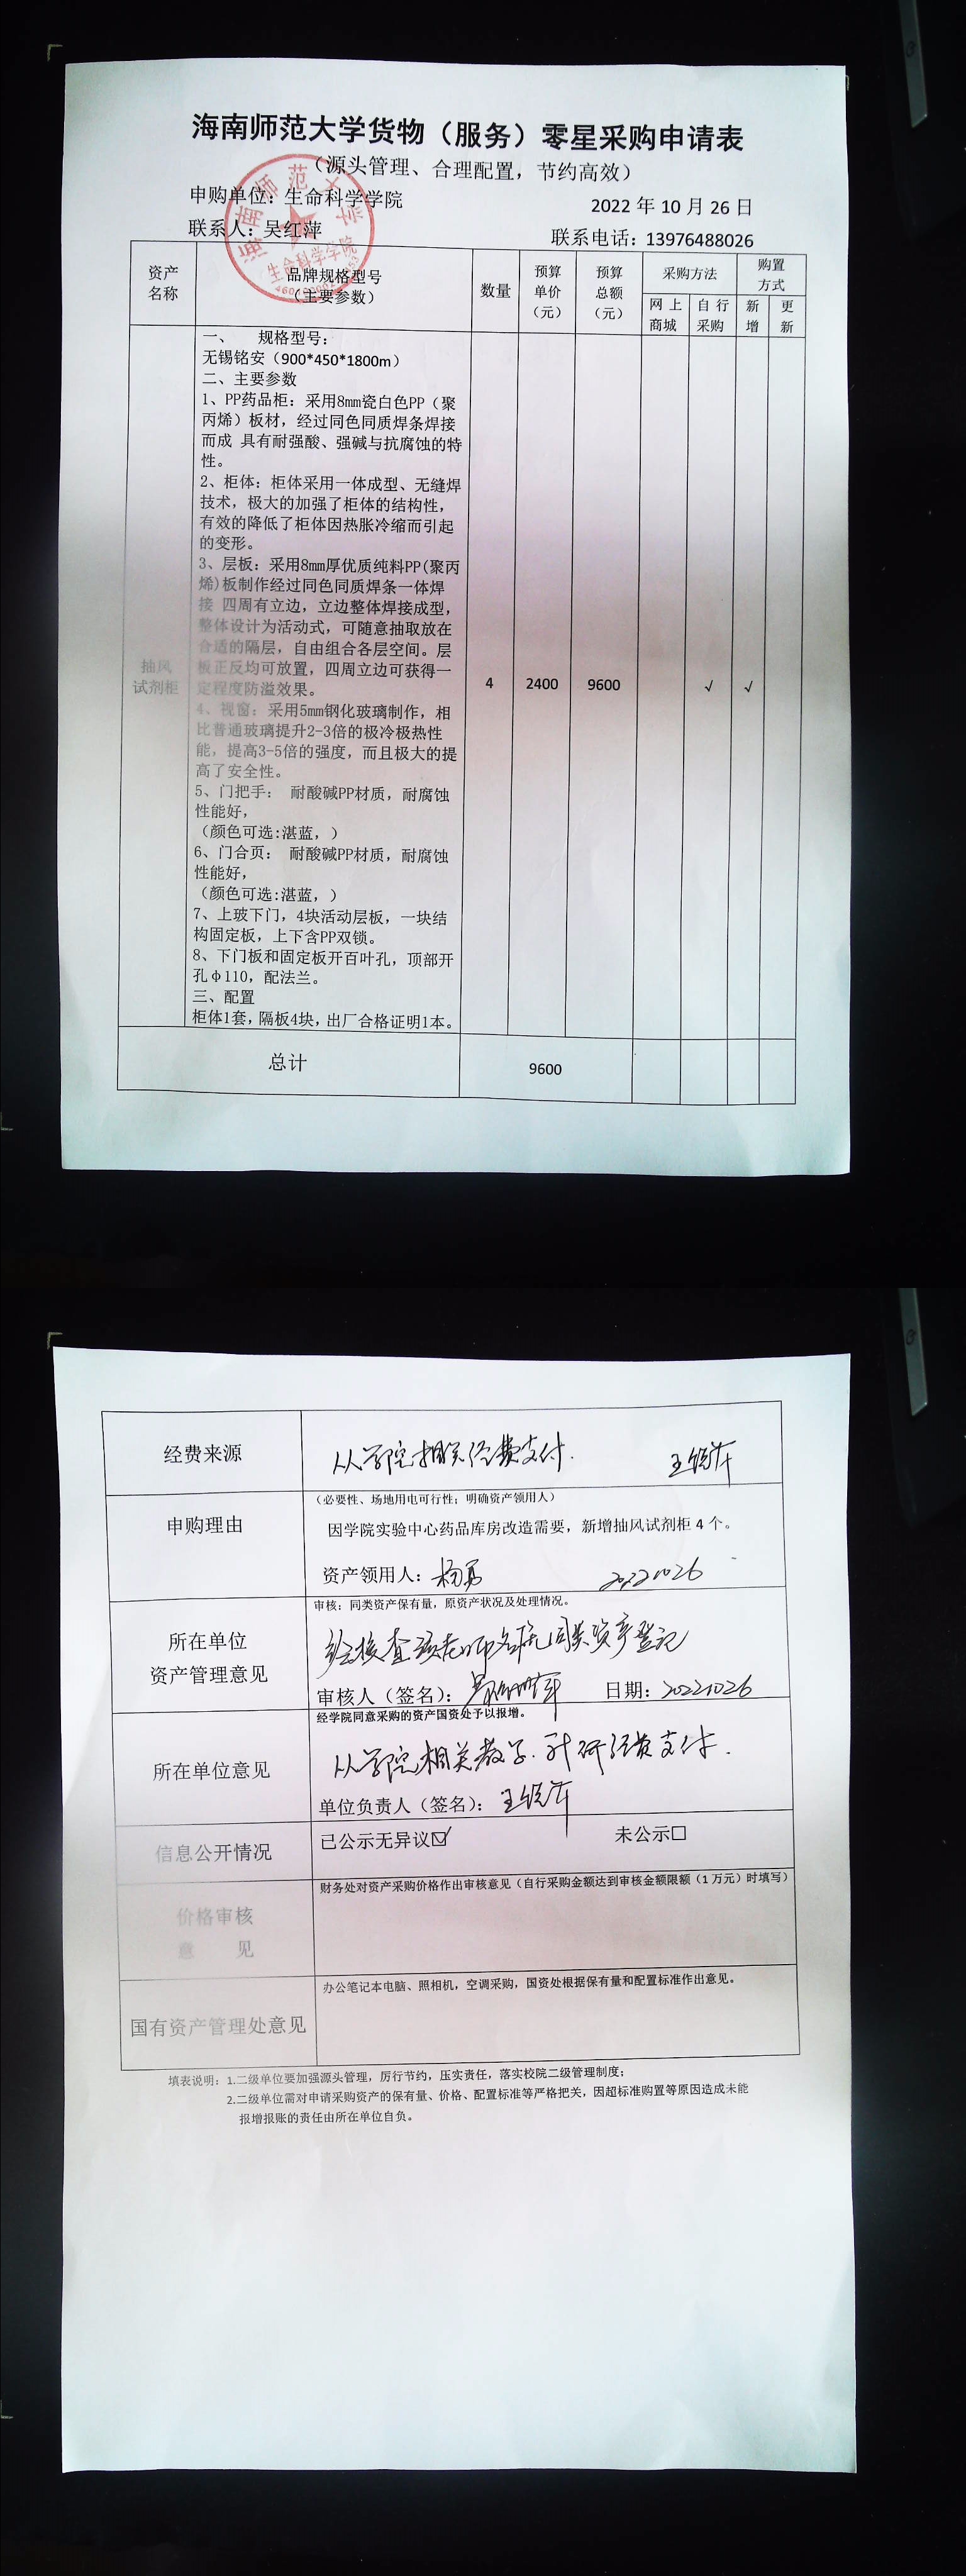 海南师范大学货物（服务）零星采购申请表
（源头管理、合理配置，节约高效）
申购单位：生命科学学院
2022 年 10 月 26 日
联系人：吴红萍
联系电话：13976488026
海南师范大学
生命科学学院
资产
名称
品牌规格型号
（主要参数）
数量
预算
单价
（元）
预算
总额
（元）
采购方法
购置
方式
网 上
商城
自 行
采购
新
增
更
新
抽风
试剂柜
一、 规格型号：
无锡铭安（900*450*1800m）
二、主要参数
1、PP药品柜：采用8mm瓷白色PP（聚
丙烯）板材，经过同色同质焊条焊接
而成 具有耐强酸、强碱与抗腐蚀的特
性。
2、柜体：柜体采用一体成型、无缝焊
技术，极大的加强了柜体的结构性，
有效的降低了柜体因热胀冷缩而引起
的变形。
3、层板：采用8mm厚优质纯料PP(聚丙
烯)板制作经过同色同质焊条一体焊
接 四周有立边，立边整体焊接成型，
整体设计为活动式，可随意抽取放在
合适的隔层，自由组合各层空间。层
板正反均可放置，四周立边可获得一
定程度防溢效果。
4、视窗：采用5mm钢化玻璃制作，相
比普通玻璃提升2-3倍的极冷极热性
能，提高3-5倍的强度，而且极大的提
高了安全性。
5、门把手： 耐酸碱PP材质，耐腐蚀
性能好，
（颜色可选:湛蓝，）
6、门合页： 耐酸碱PP材质，耐腐蚀
性能好，
（颜色可选:湛蓝，）
7、上玻下门，4块活动层板，一块结
构固定板，上下含PP双锁。
8、下门板和固定板开百叶孔，顶部开
孔φ110，配法兰。
三、配置
柜体1套，隔板4块，出厂合格证明1本。
4
2400
9600
√
√
总计
9600
经费来源
从学院相关经费支付.
申购理由
（必要性、场地用电可行性；明确资产领用人）
因学院实验中心药品库房改造需要，新增抽风试剂柜 4 个。
资产领用人：杨勇
20221026
所在单位
资产管理意见
审核：同类资产保有量，原资产状况及处理情况。
经核查该老师名下无同类资产登记
审核人（签名）：
日期：20221026
所在单位意见
经学院同意采购的资产国资处予以报增。
从学院相关教学、科研经费支付.
单位负责人（签名）：
信息公开情况
已公示无异议☑
未公示☐
价格审核
意 见
财务处对资产采购价格作出审核意见（自行采购金额达到审核金额限额（1 万元）时填写）
国有资产管理处意见
办公笔记本电脑、照相机，空调采购，国资处根据保有量和配置标准作出意见。
填表说明：1.二级单位要加强源头管理，厉行节约，压实责任，落实校院二级管理制度；
2.二级单位需对申请采购资产的保有量、价格、配置标准等严格把关，因超标准购置等原因造成未能
报增报账的责任由所在单位自负。